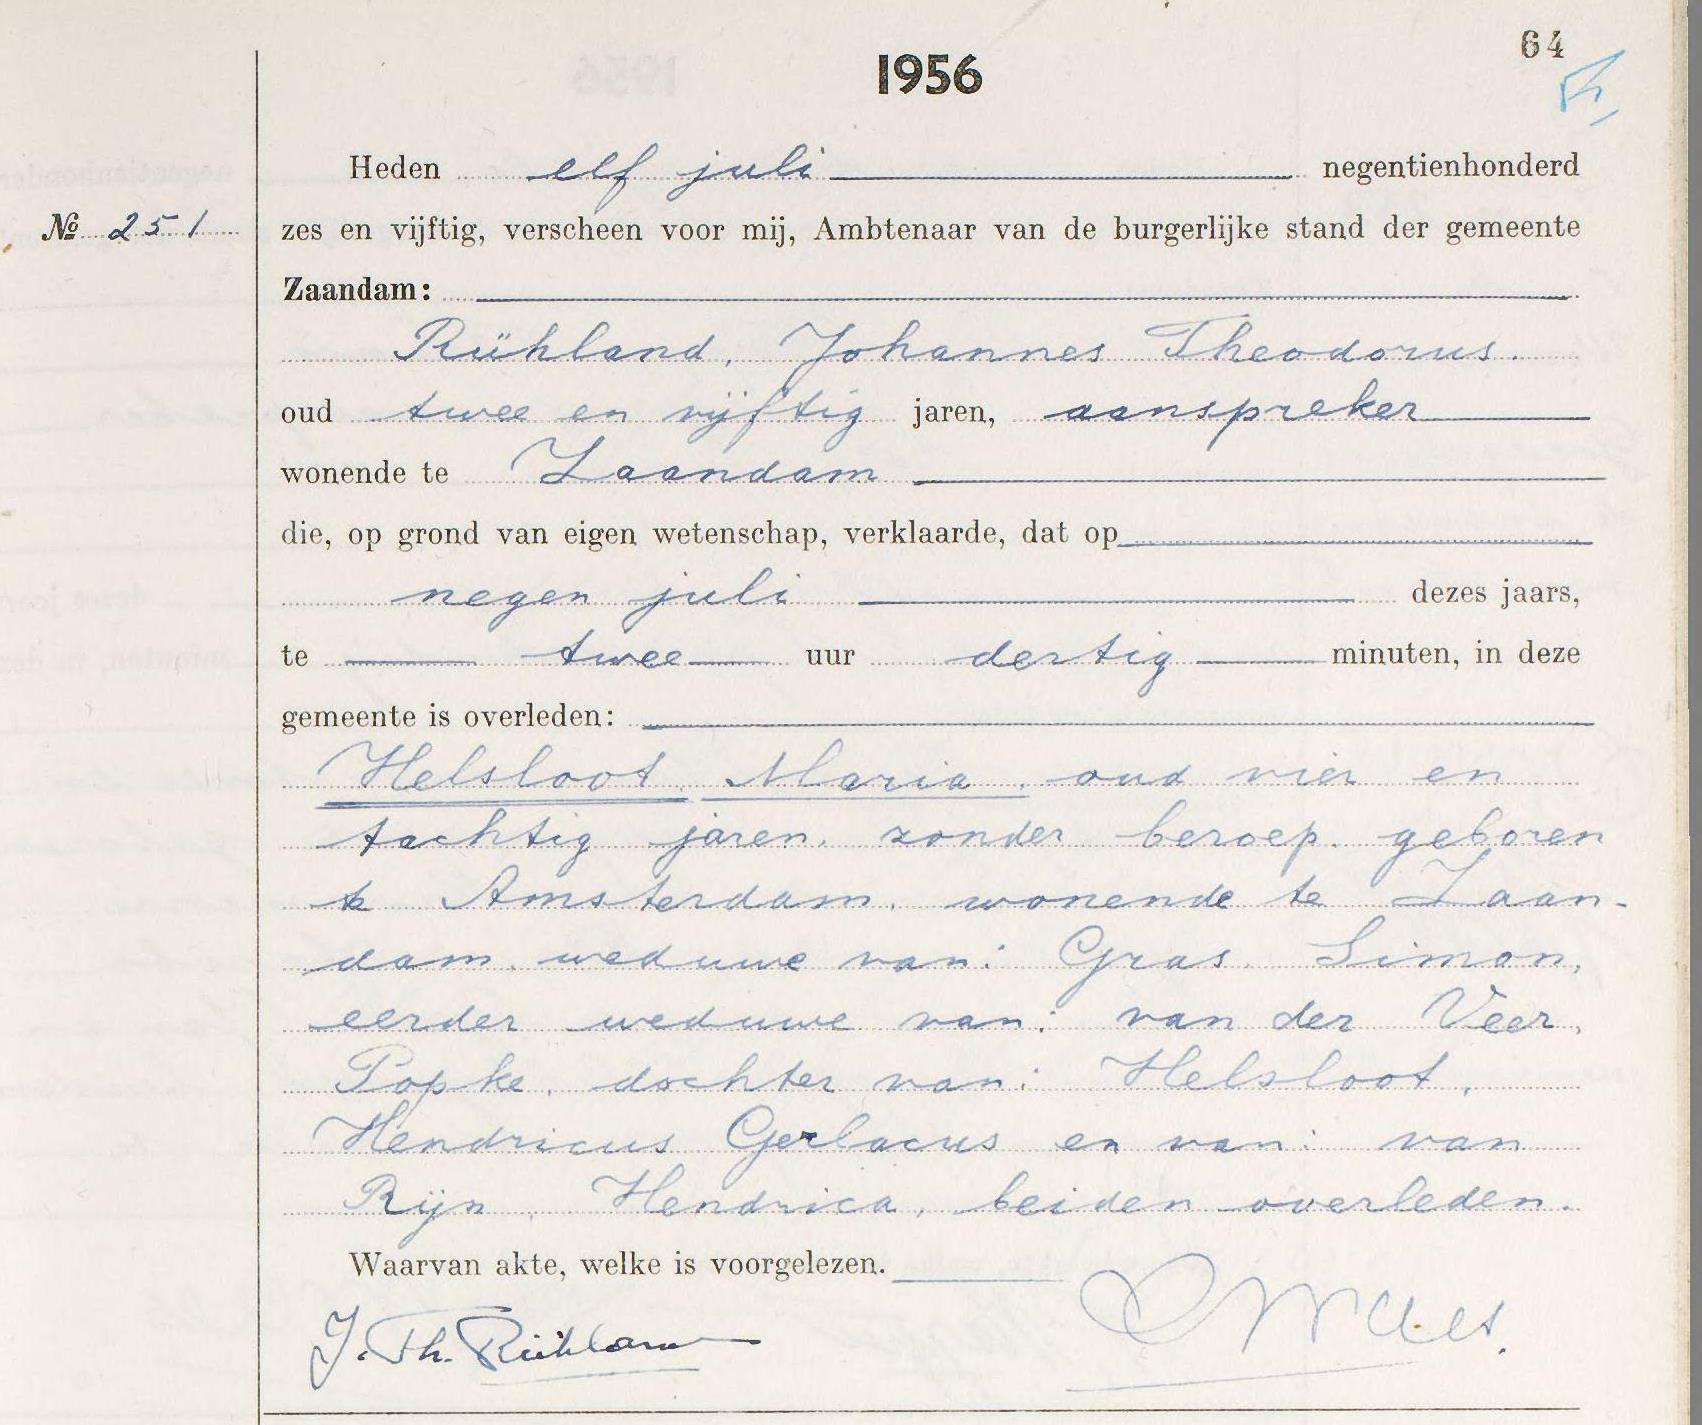 64
1956
Heden elf juli negentienhonderd
No 251
zes en vijftig, verscheen voor mij, Ambtenaar van de burgerlijke stand der gemeente
Zaandam:
Rühland, Johannes Theodorus.
oud twee en vijftig jaren, aanspreker
wonende te Zaandam
die, op grond van eigen wetenschap, verklaarde, dat op
negen juli dezes jaars,
te twee uur dertig minuten, in deze
gemeente is overleden:
Helsloot, Maria, oud vier en
tachtig jaren, zonder beroep, geboren
te Amsterdam, wonende te Zaan-
dam, weduwe van: Gras, Simon,
eerder weduwe van: van der Veer,
Popke, dochter van: Helsloot,
Hendricus Gerlacus en van: van
Rijn, Hendrica, beiden overleden.
Waarvan akte, welke is voorgelezen.
J. Th. Rühland